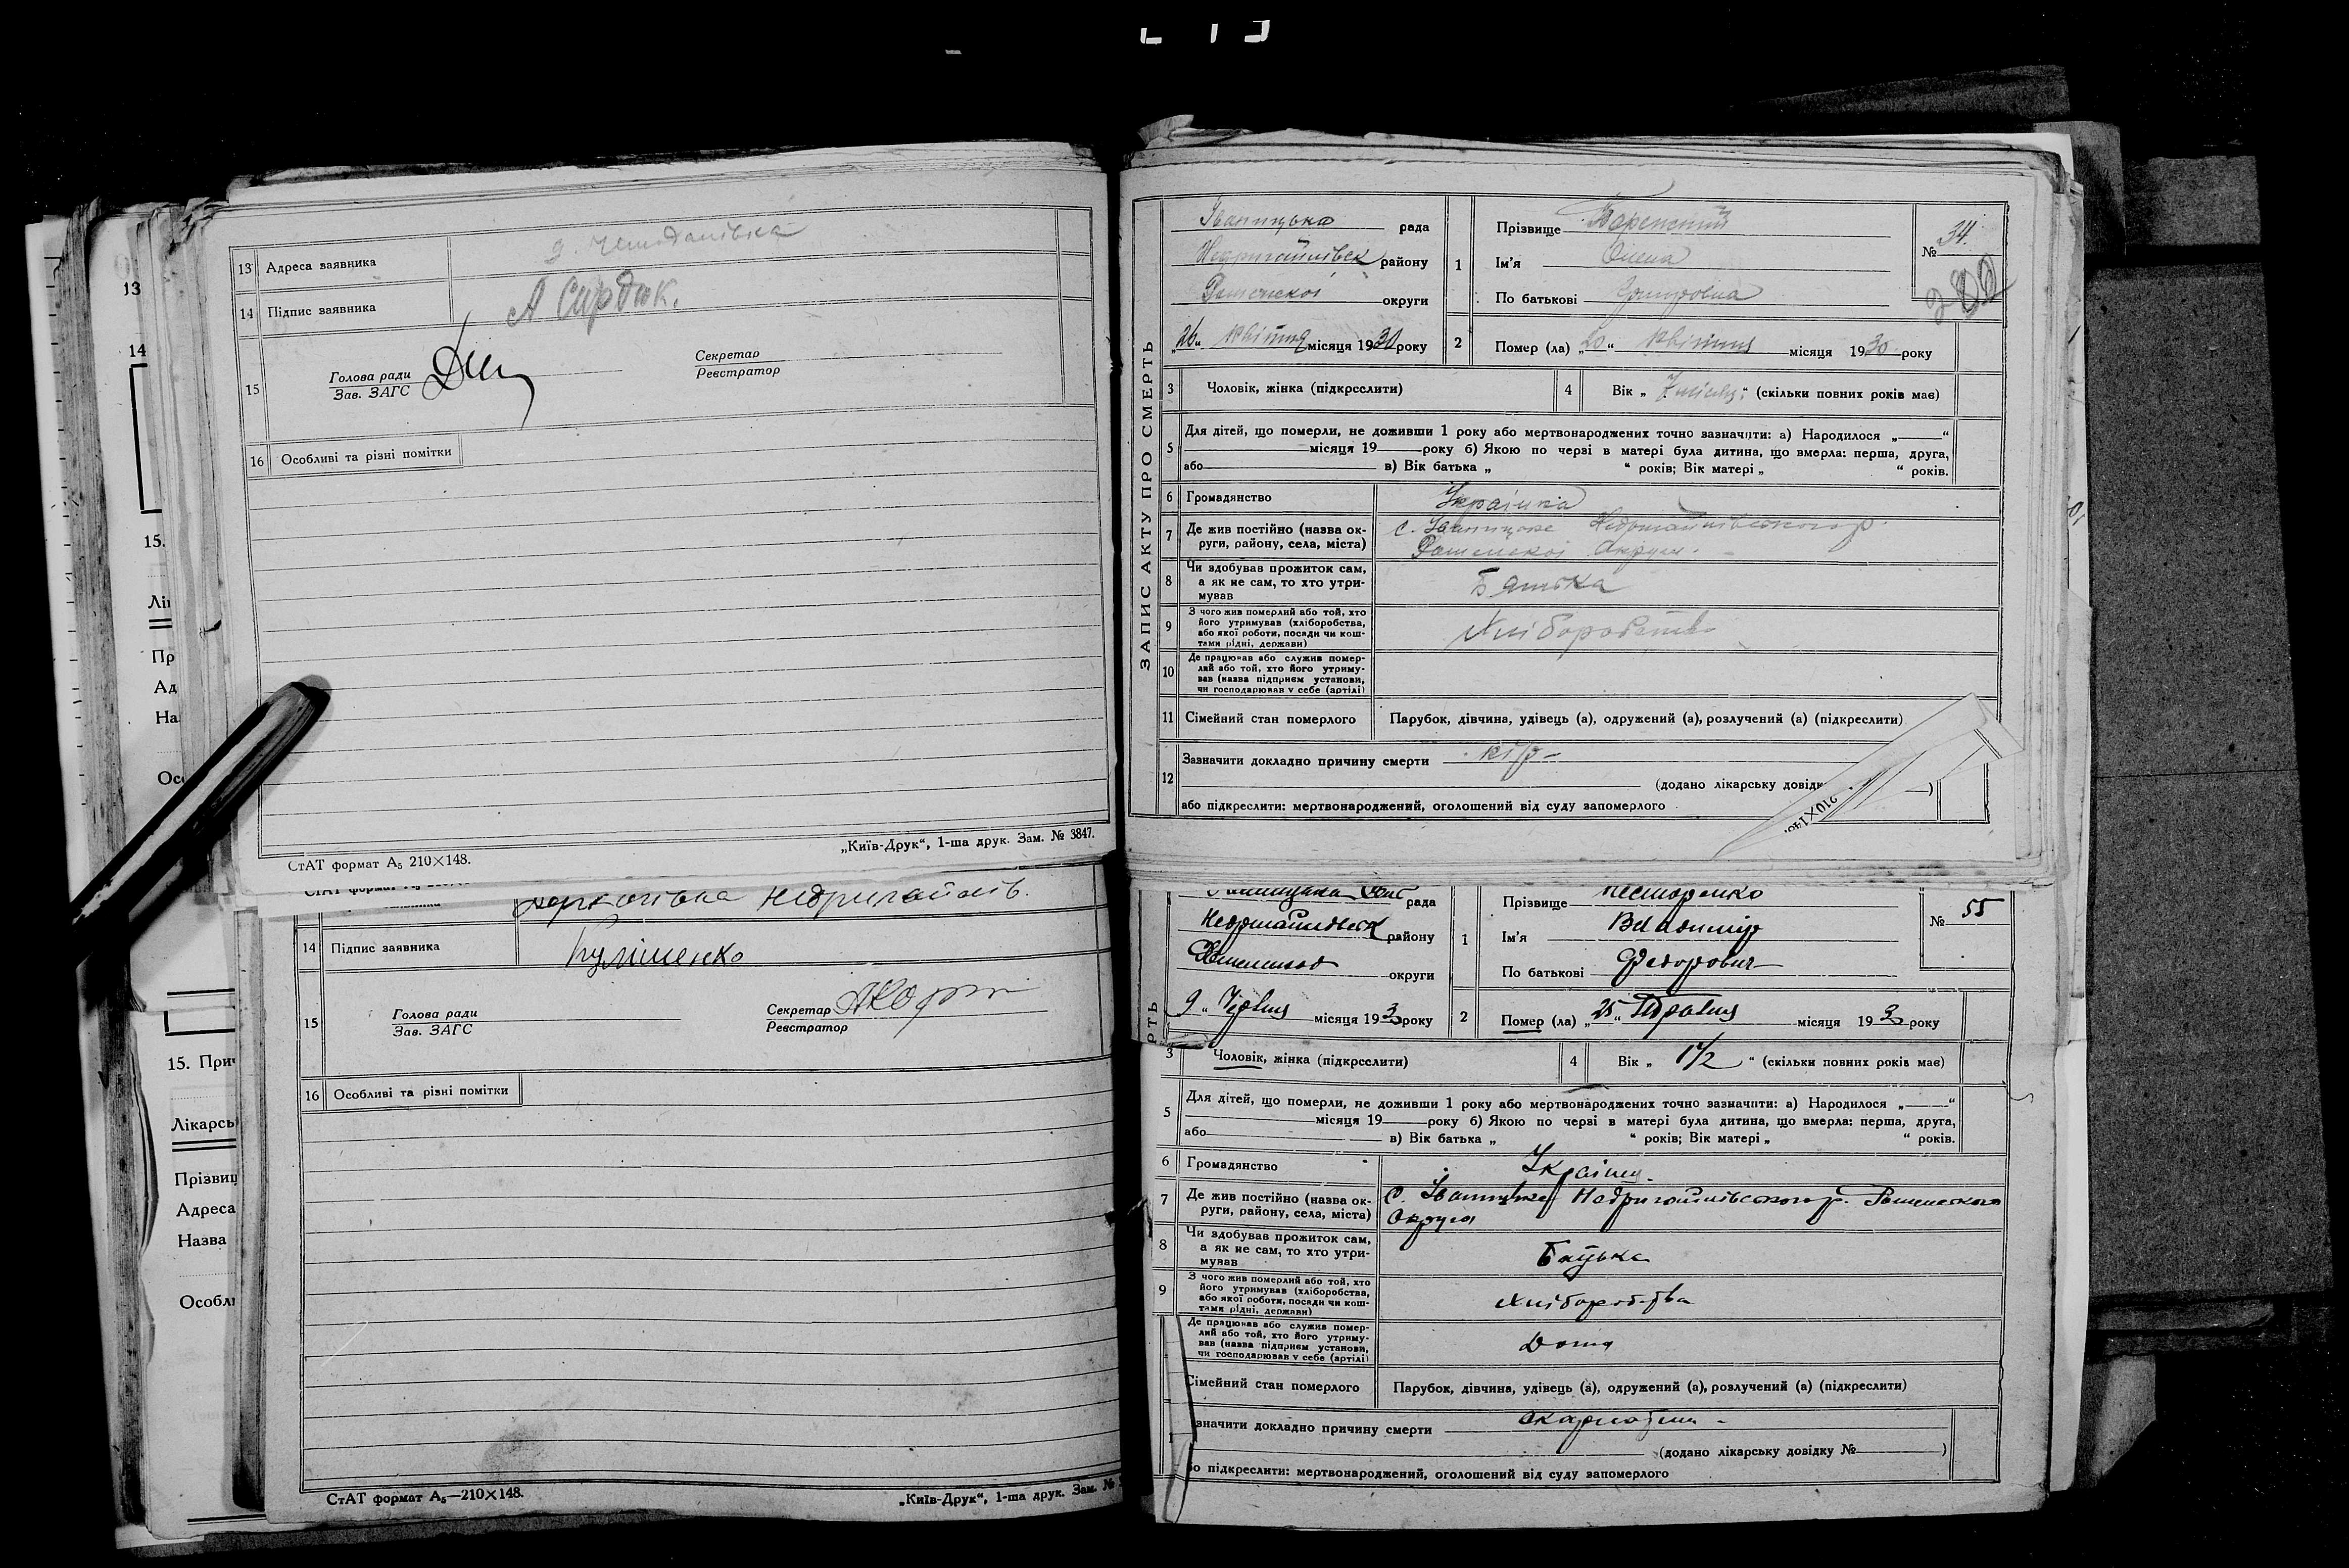 13 Адреса заявника
14 Підпис заявника А Сирдюк.
15 Голова ради Секретар
Зав. ЗАГС Реєстратор
16 Особливі та різні помітки
СтАТ формат А5 210×148. „Київ-Друк“, 1-ша друк. Зам. № 3847.
Недригайлів.
14 Підпис заявника Кулішенко
15 Голова ради Секретар
Зав. ЗАГС Реєстратор
16 Особливі та різні помітки
СтАТ формат А5—210×148. „Київ-Друк“, 1-ша друк. Зам. №
13
14
15.
Лі
Пр
Ад
На
Ос
15. При
Лікарсь
Прізвищ
Адреса
Назва
Особл
ЗАПИС АКТУ ПРО СМЕРТЬ
Іваницька рада
району
округи
„26“ квітня місяця 1930 року
1 Прізвище
Ім'я Олена
По батькові
№ 34.
280
2 Помер (ла) „20“ квітня місяця 1930 року
3 Чоловік, жінка (підкреслити) 4 Вік „ “ (скільки повних років має)
5 Для дітей, що померли, не доживши 1 року або мертвонароджених точно зазначити: а) Народилося „ “
місяця 19 року б) Якою по черзі в матері була дитина, що вмерла: перша, друга,
або в) Вік батька „ “ років; Вік матері „ “ років.
6 Громадянство Українка
7 Де жив постійно (назва ок- с. Іваницьке Недригайлівського р.
руги, району, села, міста) Роменської Округи.
8 Чи здобував прожиток сам, Батька
а як не сам, то хто утри-
мував
9 З чого жив померлий або той, хто Хліборобство
його утримував (хліборобства,
або якої роботи, посади чи кош-
тами рідні, держави)
10 Де працював або служив помер-
лий або той, хто його утриму-
вав (назва підприєм установи,
чи господарював у себе (артілі)
11 Сімейний стан померлого Парубок, дівчина, удівець (а), одружений (а), розлучений (а) (підкреслити)
12 Зазначити докладно причину смерти кір
(додано лікарську довідк )
або підкреслити: мертвонароджений, оголошений від суду запомерлого
210×148.
рада
району
округи
9 “ Червня місяця 193 року
РТЬ
1 Прізвище Нестеренко
Ім'я Владимир
По батькові Федорович
№ 55
2 Помер (ла) „25“ Травня місяця 193 року
3 Чоловік, жінка (підкреслити) 4 Вік „ 1½ “ (скільки повних років має)
5 Для дітей, що померли, не доживши 1 року або мертвонароджених точно зазначити: а) Народилося „ “
місяця 19 року б) Якою по черзі в матері була дитина, що вмерла: перша, друга,
або в) Вік батька „ “ років; Вік матері „ “ років.
6 Громадянство
7 Де жив постійно (назва ок- с. Іваницьке Недригайлівського р. Роменского
руги, району, села, міста) Округи
8 Чи здобував прожиток сам, Батька
а як не сам, то хто утри-
мував
9 З чого жив померлий або той, хто Хліборобства
його утримував (хліборобства,
або якої роботи, посади чи кош-
тами рідні, держави)
Де працював або служив помер- Дома
лий або той, хто його утриму-
вав (назва підприєм установи,
чи господарював у себе (артілі)
Сімейний стан померлого Парубок, дівчина, удівець (а), одружений (а), розлучений (а) (підкреслити)
значити докладно причину смерти
(додано лікарську довідку № )
бо підкреслити: мертвонароджений, оголошений від суду запомерлого